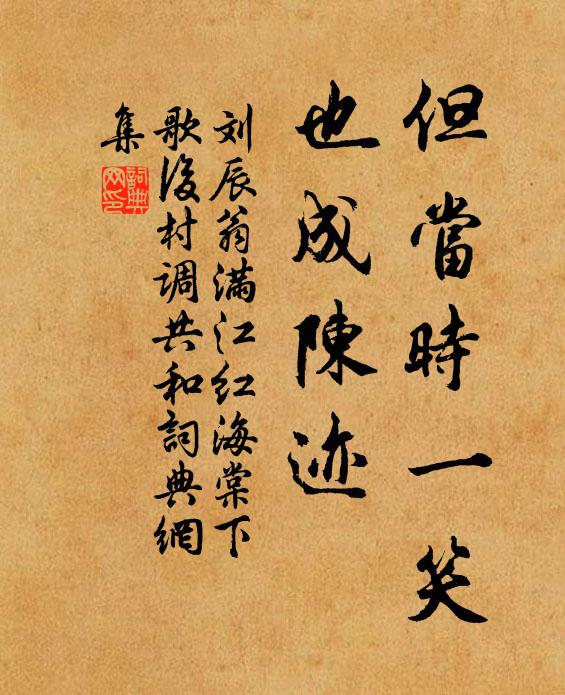 但當時一笑
也成陳迹
刘辰翁满江红海棠下
歌後村調共和詞典網
集
詞典網印